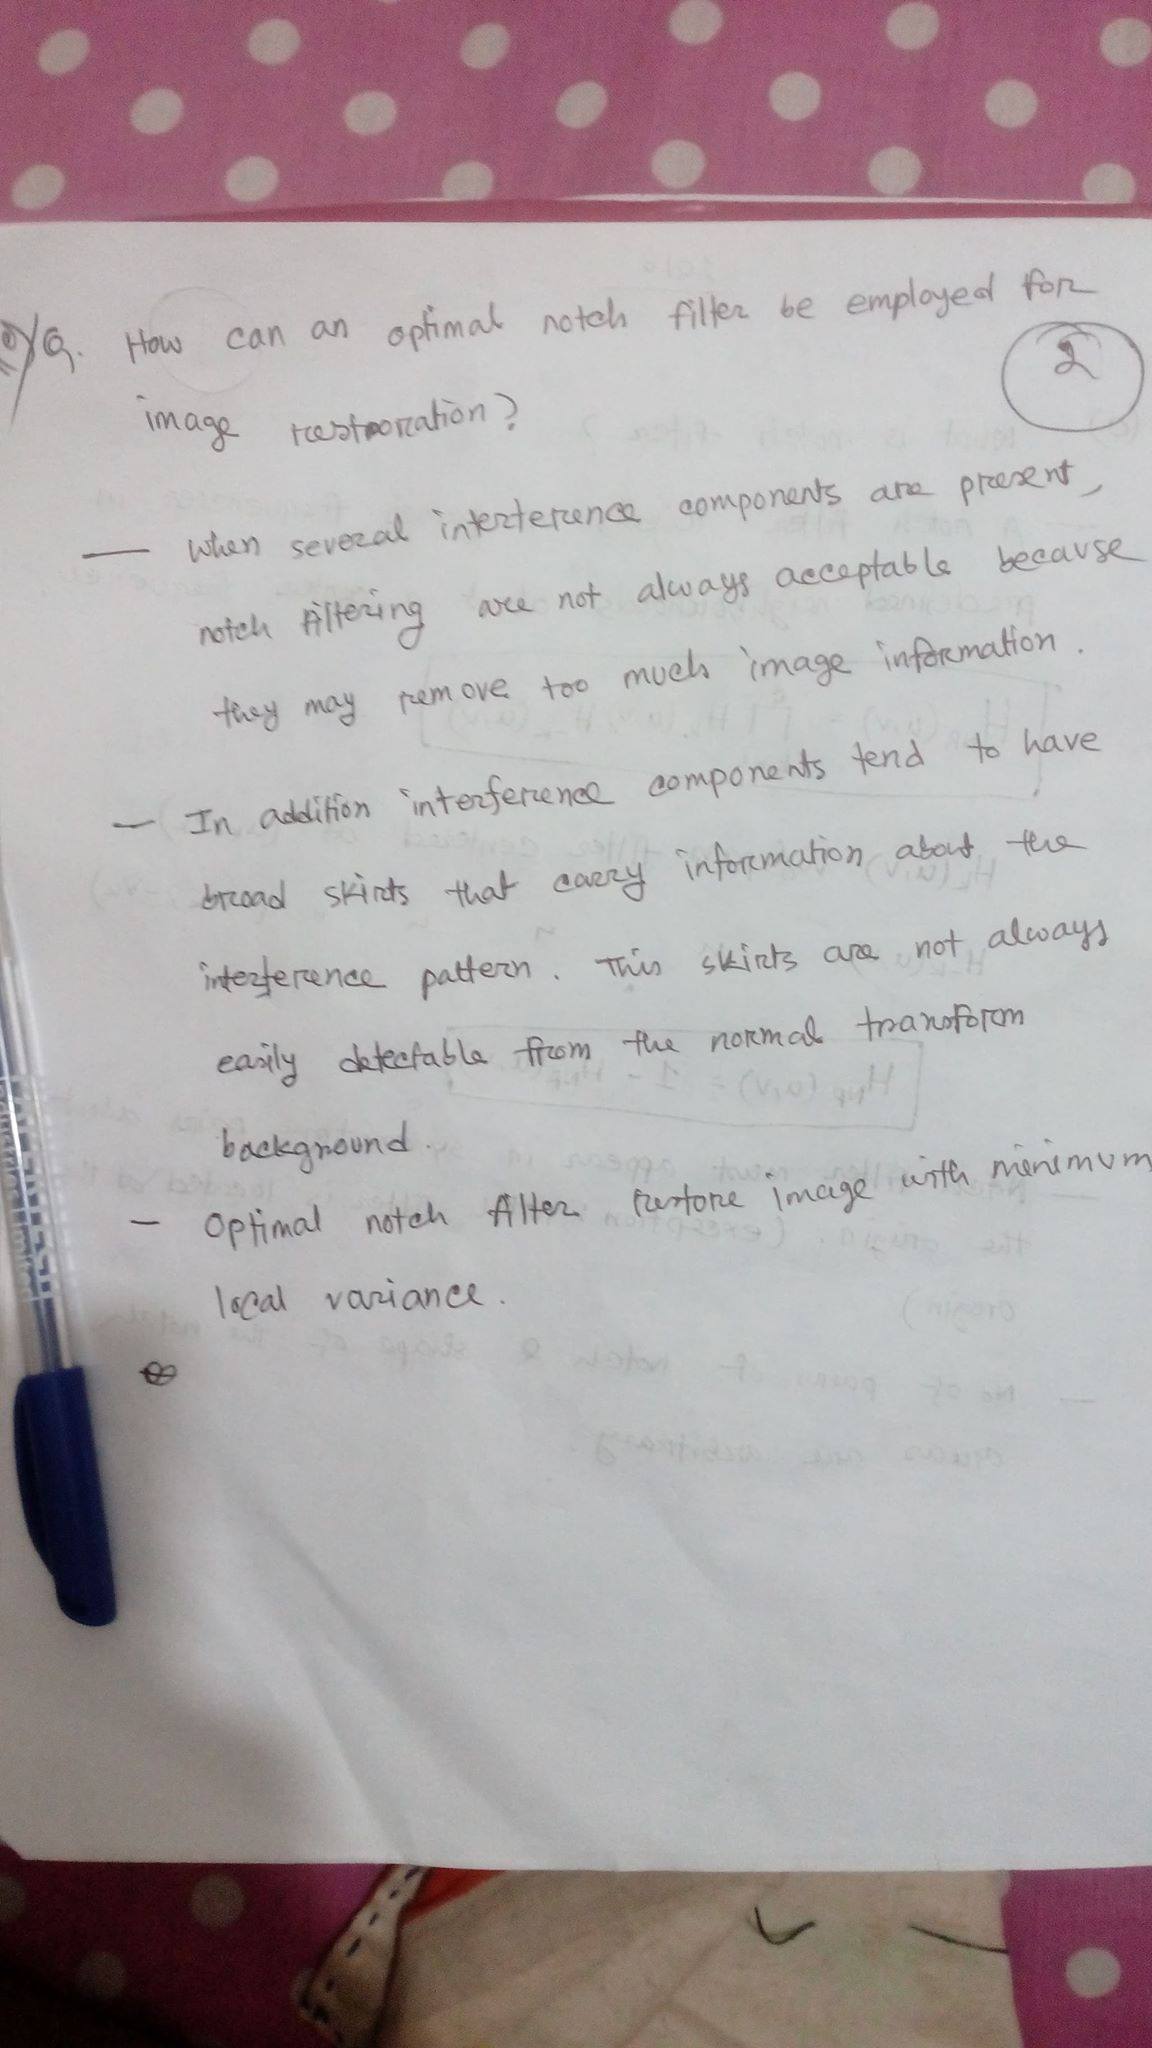 Q. How can an optimal notch filter be employed for
image restoration?
2
— When several interference components are present,
notch filtering are not always acceptable because
they may remove too much image information.
— In addition interference components tend to have
broad skirts that carry information about the
interference pattern. This skirts are not always
easily detectable from the normal transform
background.
— Optimal notch filter restore image with minimum
local variance.